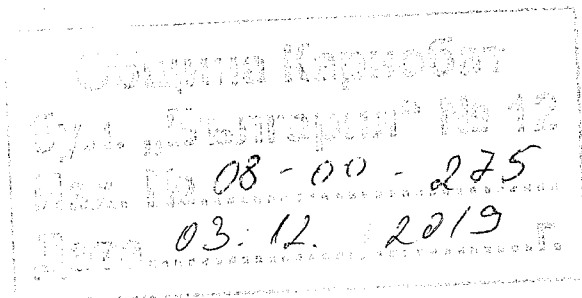 Община Карнобат
бул. „България“ № 12
Изх. № 08-00-275
Дата 03.12. 2019 г.